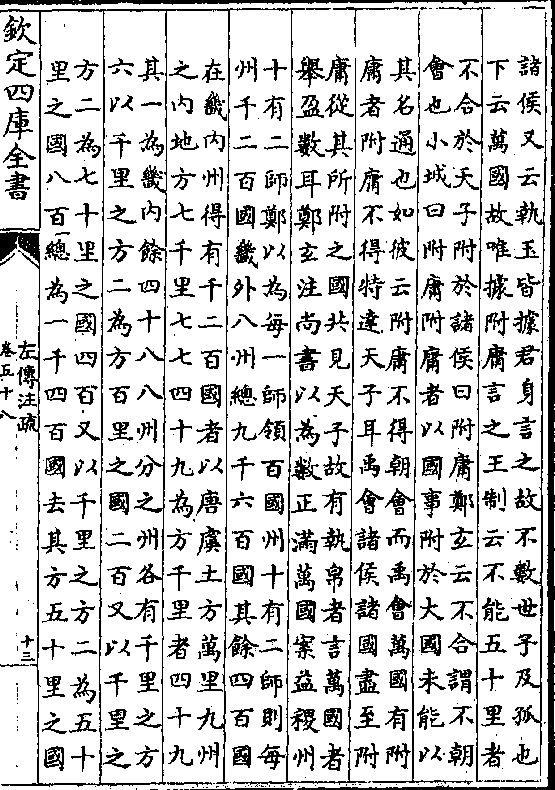 諸侯又云執玉皆據君身言之故不數世子及孤也
下云萬國故唯據附庸言之王制云不能五十里者
不合於天子附於諸侯曰附庸鄭玄云不合謂不朝
會也小城曰附庸附庸者以國事附於大國未能以
其名通也如彼云附庸不得朝會而禹會萬國有附
庸者附庸不得特達天子耳禹會諸侯諸國盡至附
庸從其所附之國共見天子故有執帛者言萬國者
舉盈數耳鄭玄注尚書以為數正滿萬國案益稷州
十有二師鄭以為每一師領百國州十有二師則每
州千二百國畿外八州總九千六百國其餘四百國
在畿內州得有千二百國者以唐虞土方萬里九州
之內地方七千里七七四十九為方千里者四十九
其一為畿內餘四十八八州分之州各有千里之方
六以千里之方二為方百里之國二百又以千里之
方二為七十里之國四百又以千里之方二為五十
里之國八百總為一千四百國去其方五十里之國
欽定四庫全書
左傳注疏
卷五十八
十三